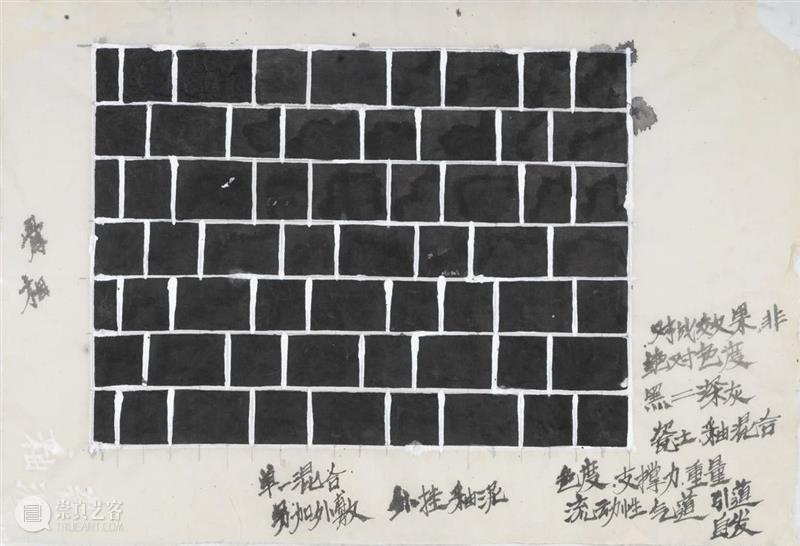 对比效果,非
绝对色度
黑=深灰
瓷土,釉混合
单一混合
另加外敷
外挂釉泥
色度.支撑力.重量
流动性 气道 引道
自发
崇真艺客